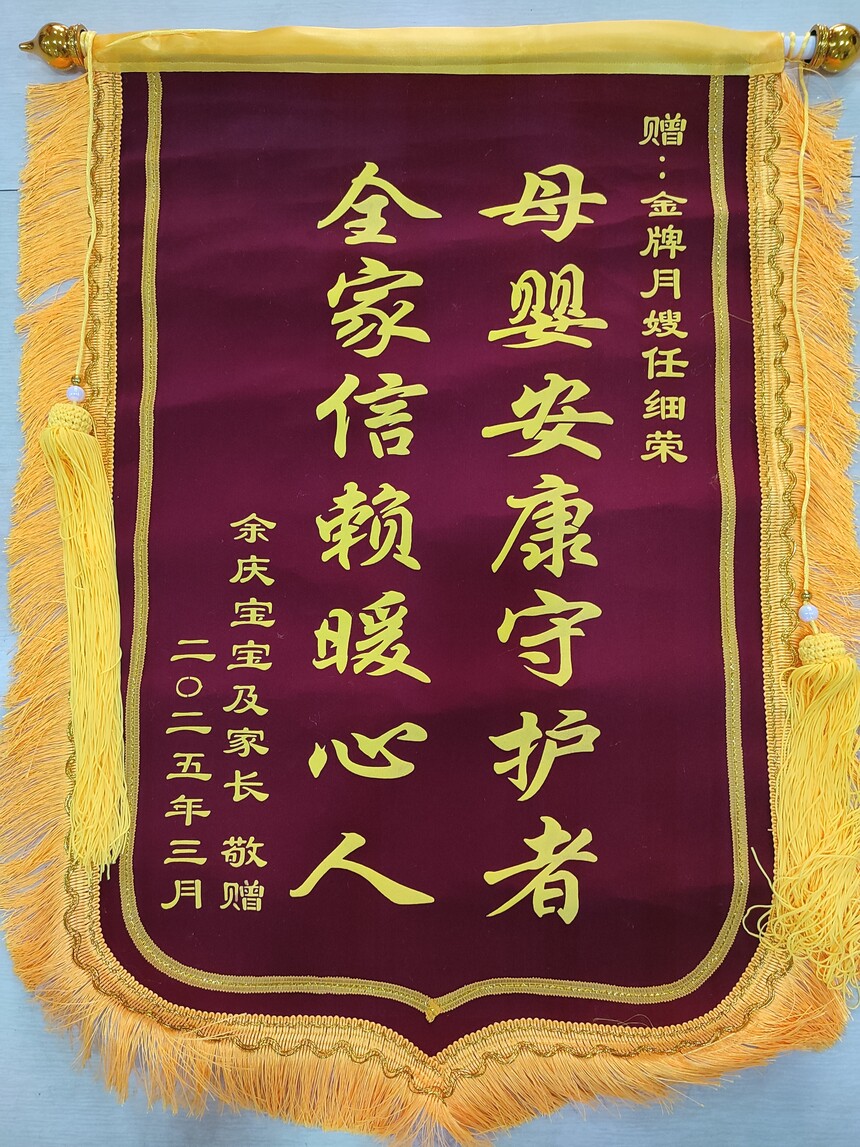 赠：金牌月嫂任细荣
母婴安康守护者
全家信赖暖心人
余庆宝宝及家长 敬赠
二〇二五年三月